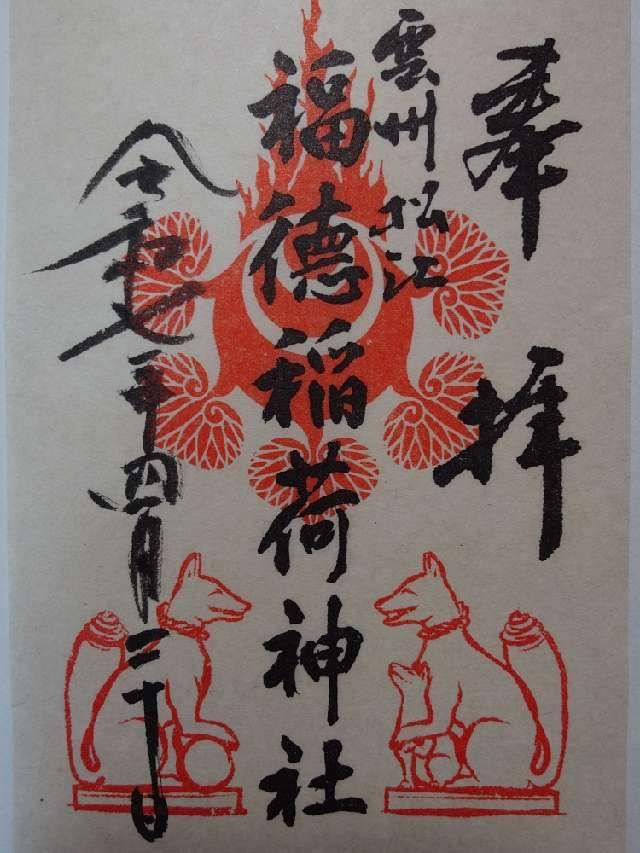 奉拝
雲州松江
福徳稲荷神社
令和七年四月二十日